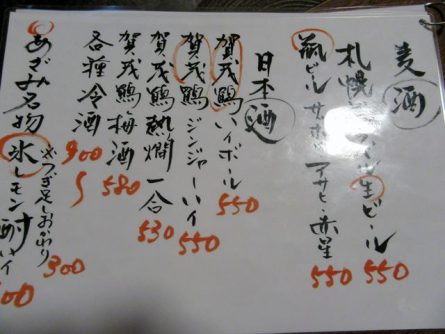 麦酒
札幌 生ビール 550
瓶ビール サッポロ アサヒ 赤星 550
日本酒
賀茂鶴ハイボール 550
賀茂鶴ジンジャーハイ 550
賀茂鶴熱燗一合 530
賀茂鶴梅酒 580
各種冷酒 900〜
あざみ名物 氷レモン酎ハイ
つぎ足しおかわり 300